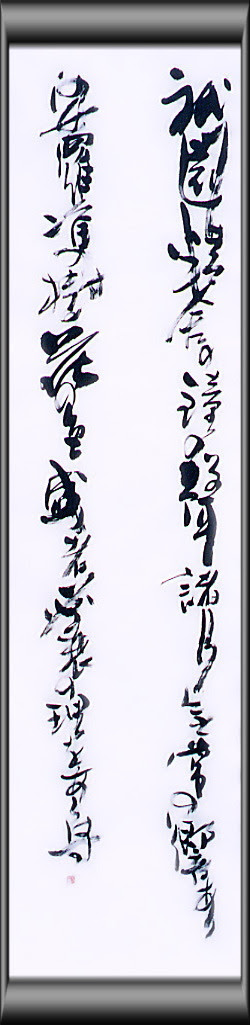 祇園精舎の鐘の声諸行無常の響きあり
沙羅双樹花の色盛者必衰の理を